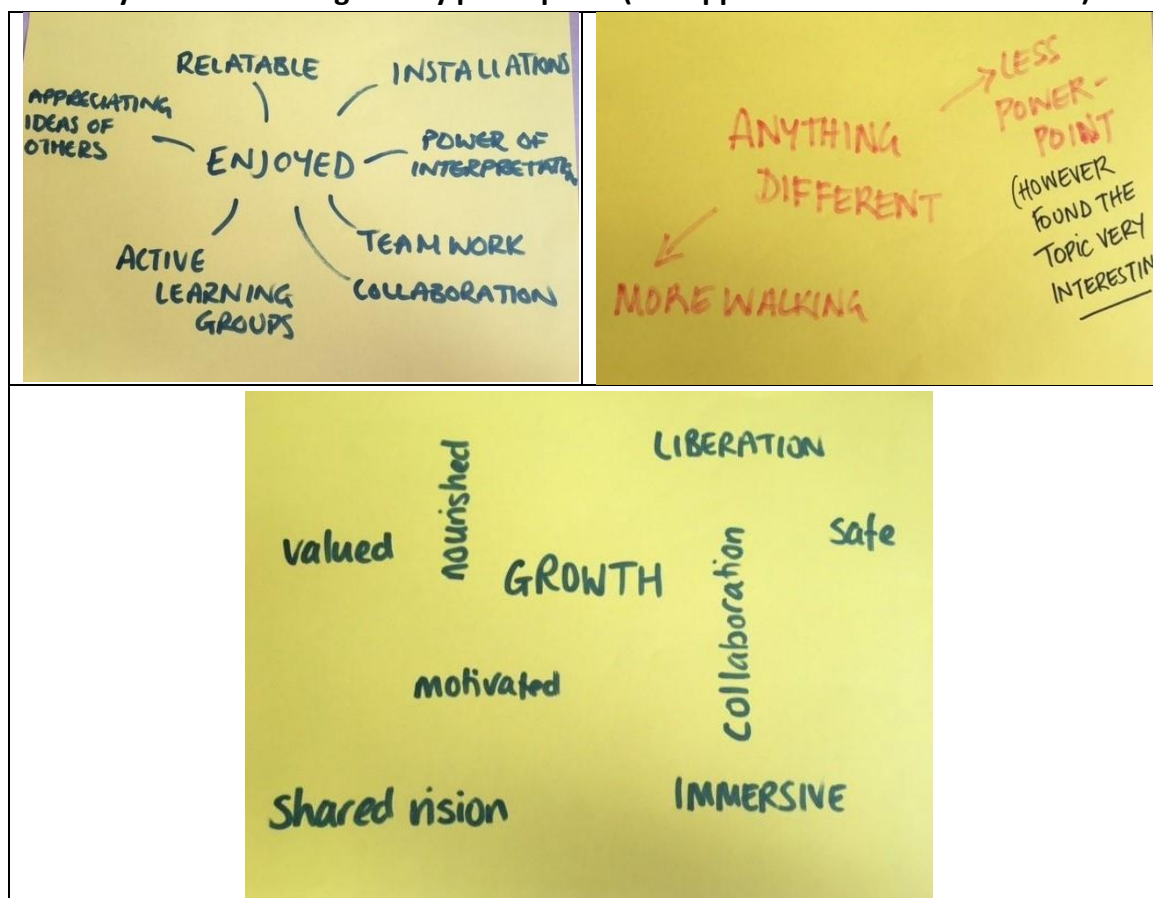 RELATABLE
INSTALLATIONS
APPRECIATING
IDEAS OF
OTHERS
ENJOYED
POWER OF
INTERPRETATION
TEAMWORK
ACTIVE
LEARNING
GROUPS
COLLABORATION
ANYTHING
DIFFERENT
LESS
POWER-
POINT
(HOWEVER
FOUND THE
TOPIC VERY
INTERESTIN
MORE WALKING
LIBERATION
nourished
valued
safe
GROWTH
collaboration
motivated
shared vision
IMMERSIVE